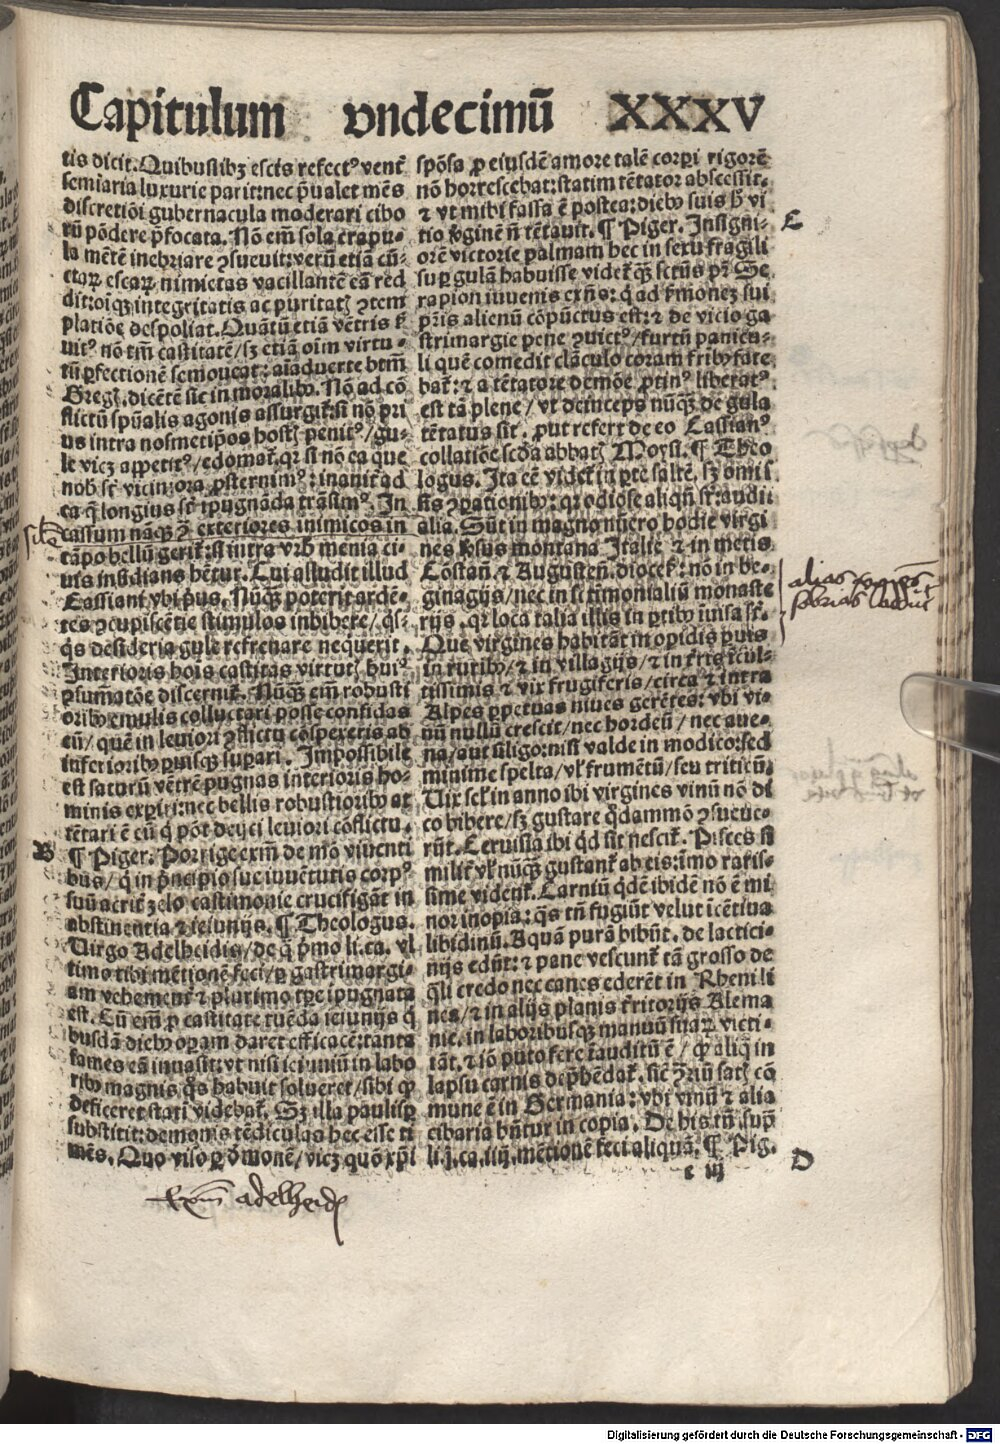 Capitulum vndecimū XXXV
tis dicit. Quibuslibꝫ escis refectꝰ ventʳ
semīaria luxurie parit: nec p̄ualet mēs
discretiōi gubernacula moderari cibo
rū pōdere p̄focata. Nō em̄ sola crapu-
la mētē inebriare ꝯsueuit: verū etiā cū-
ctaꝝ escaꝝ nimietas vacillantē eā red
dit: oīqꝫ integritatis ac puritatꝭ ꝯtem
platiōe despoliat. Quātū etiā vētris
uitꝰ nō tm̄ castitatē/ sꝫ etiā oīm virtu-
tū ꝑfectionē semoueat: aīaduerte btm̄
Greg. dicētē sic in moralibꝰ. Nō ad cō
flictū spūalis agonis assurgit̄: si nō pri
us intra nosmetip̄os hostꝭ penitꝰ/ gu-
le vicꝫ appetitꝰ/ edomat̄. qꝛ si nō ea que
nob̄ sūt viciniora ꝓsternimꝰ: inanit̄ ad
ea q̄ longius sūt īpugnāda trāsimꝰ. In
cassum nāqꝫ ꝯ̄ exteriores inimicos in
cāpo bellū gerit̄: si intra vrb̄ menia ci-
uis insidians hētur. Cui alludit illud
Cassiani vbi p̄us. Nūqꝫ poterit arde-
tes ꝯcupiscētie stimulos inhibere/ qi-
qs desideria gule refrenare neqͥuerit.
Interioris hoīs castitas virtutꝭ huiꝰ
ꝯsummatōe discernit̄. Nūqꝫ em̄ robusti
oribꝰ emulis colluctari posse confidas
eū/ quē in leuiori ꝯflictu cōspexeris ab
inferioribꝰ ꝑuisqꝫ supari. Impossibile
est saturū vētrē pugnas interioris ho-
minis experiri: nec bellis robustioribꝰ at
tētari ē eū q̄ pōt deijci leuiori cōflictu.
B
¶ Piger. Porrige exm̄ de mō viuenti
bus/ q̄ in p̄ncipio sue iuuētutis corpꝰ
suū acrit̄ zelo castimonie crucifigāt in
abstinentia ⁊ ieiunijs. ¶ Theologus.
Virgo Adelheidis/ de q̄ p̄mo li. ca. vl
timo tibi mētionē feci/ ꝑ gastrimargi-
am vehement̄ ⁊ plurimo tp̄e īpugnata
est. Cū em̄ ꝑ castitate tuēda ieiunijs q̄
busdā diebꝰ opam daret efficacē: tanta
fames eā inuasit: vt nisi ieiuniū in labo
ribꝰ magnis q̄s habuit solueret/ sibi ꝙ
deficeret stati videbat̄. Sꝫ illa paulisꝑ
substitit: demonis tēdiculas hec esse ti
mēs. Quo viso ꝑ d̄monē/ vicꝫ quō xp̄i
Exm̄ adelheidꝭ
spōsa ꝑ eiusdē amore talē corpi rigorē
nō horrescebat: statim tētator abscessit.
⁊ vt mihi fassa ē postea: diebꝰ suis h̄ vi
tio v̄ginē n̄ tētauit. ¶ Piger. Insigni-
E
orē victorie palmam hec in sexu fragili
suꝑ gulā habuisse videt̄ qꝫ sctūs pr̄ Se
rapion iuuenis exn̄s: q̄ ad s̄monez sui
pr̄is alienū cōpūctus est: ⁊ de vicio ga
strimargie pene ꝯuictꝰ/ furtū panicu-
li quē comedit clāculo coram fr̄ibꝰ fate
bat̄: ⁊ a tētatore demōe ꝓtinꝰ liberatꝰ
est tā plene/ vt deinceps nūqꝫ de gula
tētatus sit. ꝓut refert̄ de eo Cassianꝰ
collatiōe scda abbatꝭ Moysi. ¶ Theo
logus. Ita eē videt̄ in ꝑte saltē. sꝫ omis
sis ꝯpationibꝰ: qꝛ odiose aliqn̄ sūt: audi
alia. Sūt in magno nūero hodie virgi
nes v̄sus montana Italie ⁊ in metis
Cōstan̄. ⁊ Augusten̄. dioceꝫ: nō in be-
ginagijs/ nec in sctimonialiū monaste
alias
rijs. qꝛ loca talia illis in ꝑtibꝰ īuisa sūt.
Que virgines habitāt in opidis ꝑuis
in ruribꝰ/ ⁊ in villagijs/ ⁊ in t̄ris icul-
tissimis ⁊ vix frugiferis/ circa ⁊ intra
Alpes ꝑpetuas niues gerētes: vbi vi-
nū nullū crescit/ nec hordeū/ nec aue-
na/ aut siligo: nisi valde in modico: sed
minime spelta/ vl̓ frumētū/ seu triticū.
Vix sel̓ in anno ibi virgines vinū nō di
co bibere/ sꝫ gustare q̄dammō ꝯsueue-
rūt. Ceruisia ibi qd̄ sit nescit̄. Pisces si
milit̄ vl̓ nūqꝫ gustant̄ ab eis: imo raris-
sime vident̄. Carniū qdē ibidē nō ē mi
nor inopia: q̄s tn̄ fugiūt velut īcētiua
libidinū. Aquā purā bibūt. de lactici-
nijs edūt: ⁊ pane vescunt̄ tā grosso de
q̄li credo nec canes ederēt in Rheni li
nea/ ⁊ in alijs planis t̄ritorijs Alema
nie. in laboribusqꝫ manuū suaꝝ victi-
tāt. ⁊ iō puto fere īauditū ē/ ꝙ aliq̄ in
lapsu carnis dep̄hēdat̄. sic̄ ꝯriū satꝭ cō
mune ē in Germania: vbi vinū ⁊ alia
cibaria hn̄tur in copia. De his tn̄ sup̄
li. j. ca. iiij. mētionē feci aliquā. ¶ Pig.
D
e iij
Digitalisierung gefördert durch die Deutsche Forschungsgemeinschaft - DFG